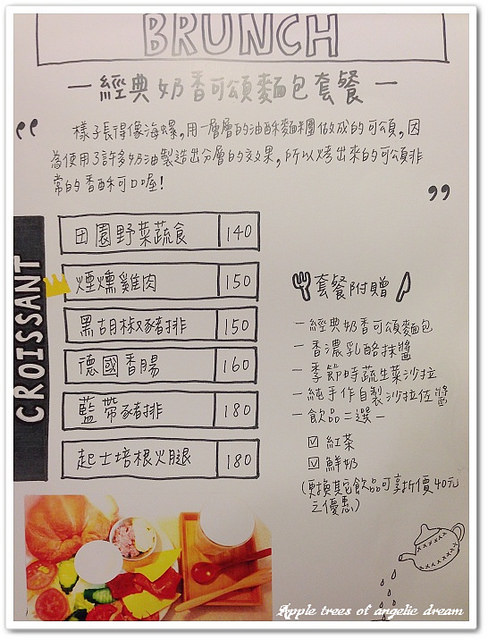 BRUNCH
一 經典奶香可頌麵包套餐 一
“ 樣子長得像海螺,用一層層的油酥麵糰做成的可頌,因
為使用了許多奶油製造出分層的效果,所以烤出來的可頌非
常的香酥可口喔! ”
CROISSANT
田園野菜蔬食 140
煙燻雞肉 150
黑胡椒豬排 150
德國香腸 160
藍帶豬排 180
起士培根火腿 180
套餐附贈
一經典奶香可頌麵包
一香濃乳酪抹醬
一季節時蔬生菜沙拉
一純手作自製沙拉佐醬
一飲品二選一
☑ 紅茶
☑ 鮮奶
(更換其它飲品可享折價40元
之優惠)
Apple trees of angelic dream